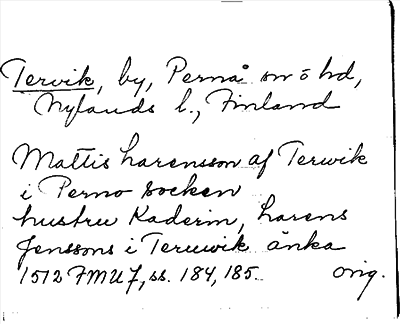 Tervik, by, Pernå sn o hd,
Nylands l., Finland
Mattis Larensson af Terwik
i Perno socken
hustru Kaderin, Larens
Jenssons i Teruwik änka
1512 FMU 7, ss. 184, 185. orig.